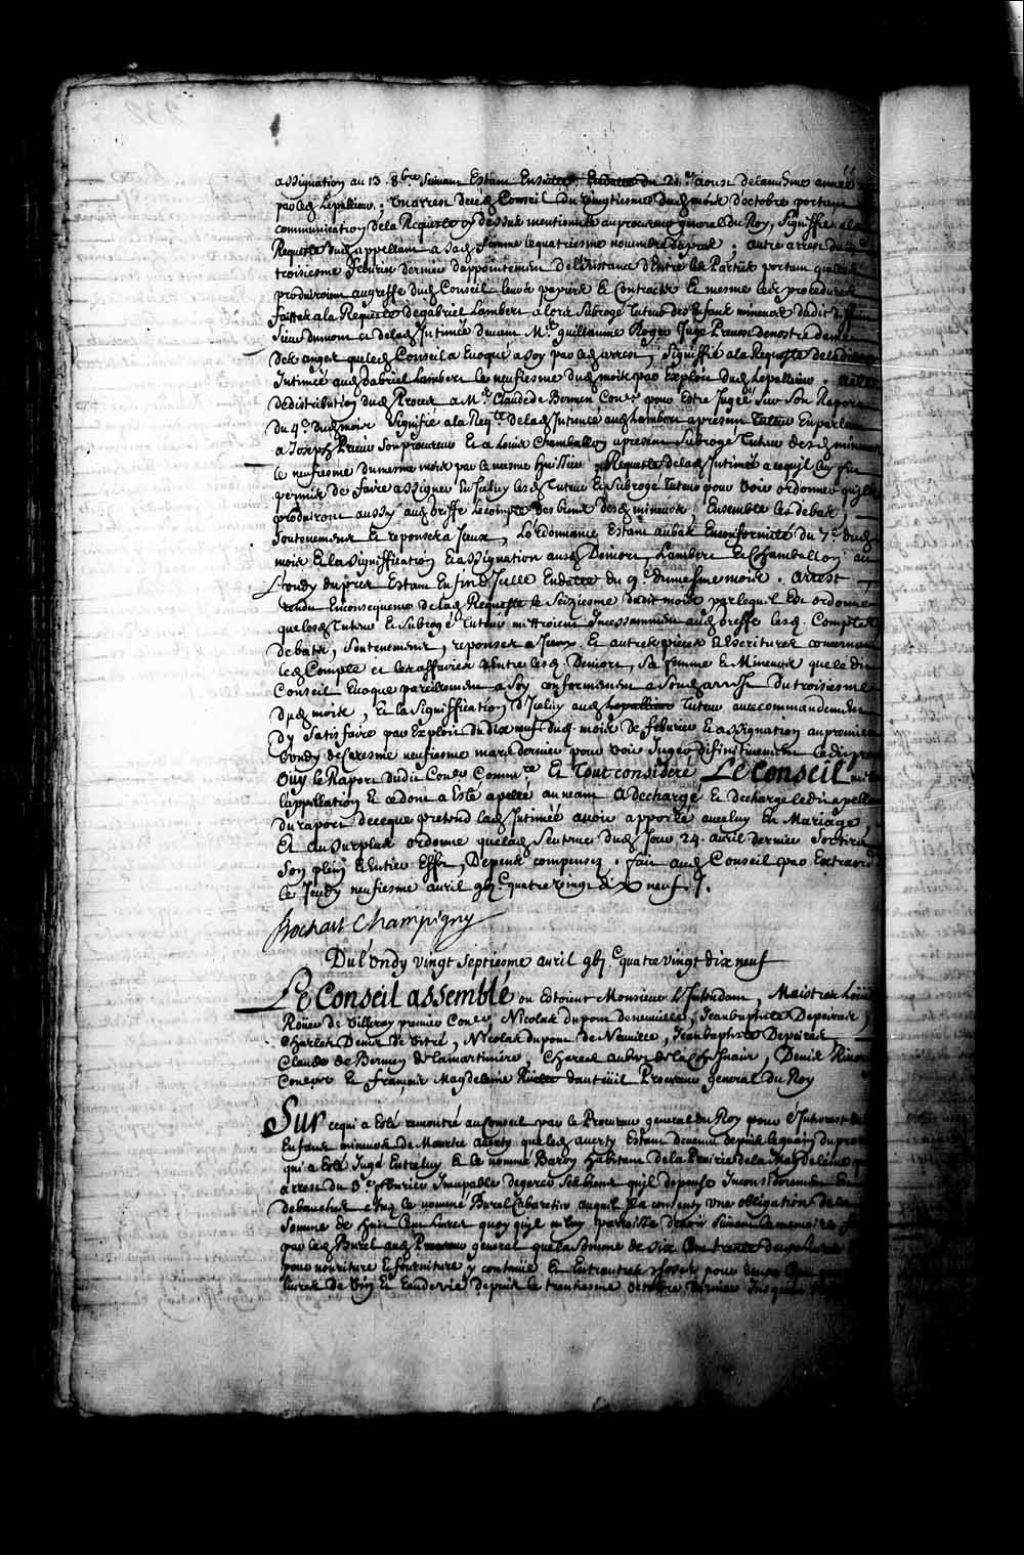 assignation au 13. 8.bre Suivant Estant Ensuitte, Endatte du 21.e aoust delamesme année
par led Lepallieur. Un arrest dece d Conseil du vingtiesme dud mois d'octobre portant
communication dela Requeste cy dessus mentionnée au procureur general du Roy, Signiffié ala
Requeste dud appellant a lad femme le quatriesme novembre dud an. Autre arrest du
troisiesme febvrier dernier d'appointement del'Instance d'Entre les Parties portant que
produiroient augreffe dud Conseil leurs papiers Et Contracts Et mesme les procedures
faittes ala Requeste de gabriel Lambert alors Subrogé Tuteur des Enfans mineurs dudit
Sieur dumont et delad Intimée devant M.e guillaume Roger Juge Prevost denostre dame
des anges que led Conseil a Evoqué a soy par led arrest, Signiffié ala Requeste deladite
Intimée aud Gabriel Lambert le neufiesme dud mois par Exploit dud Lepallieur.
dedistribution dud Procez a M.e Claude de Bermen Con.er pour Estre Jugé Sur Son Raport
du 4.e dud mois Signifié ala Req.te delad Intimée aud Lambert apresent Tuteur En parlant
a Joseph Prieur Son procureur Et a Louis Chamballon apresent Subrogé Tuteur desd mineurs
le neufiesme dumesme mois par le mesme huissier. Requeste delad Intimée a ce qu'il luy fut
permis de faire assigner En Iceluy lesd Tuteur Et Subrogé Tuteur pour voir ordonner qu'ils
produiront aussy aud Greffe le compte des biens desd mineurs, Ensemble les debats,
Soutenemens Et reponses a Iceux, L'ordonnance Estant aubas En conformité du 7.e dud
mois Et la Signiffication Et assignation ausd Deniort, Lambert Et Chamballon au
Lundy dapres Estant En fin d'Icelle Endatte du 9.e dumesme mois. Arrest
rendu En consequence delad Requeste le Seiziesme dudit mois par lequel Est ordonné
que lesd Tuteur Et Subrogé Tuteur mettroient Incessamment aud Greffe lesd. Comptes
debats, Soutenemens, reponses a Iceux Et autres pieces Et Escritures concernant
led Compte et les affaires d'Entre lesd Deniort, Sa femme Et Mineurs que ledit
Conseil Evoque pareillement a Soy conformement a Sond arrest du troisiesme
dud mois, Et la Signiffication d'Iceluy aud Lepallieur Tuteur avec commandement
d'y Satisfaire par Exploit du dix neuf dud mois de febvrier Et assignation au premier
Lundy de Caresme neufiesme mars dernier pour voir Juger difinitivement
Ouy le Raport dudit Con.er Comm.re Et Tout consideré Le Conseil
l'appellation Et ce dont a Esté apellé au neant A dechargé Et decharge ledit apellant
du raport de ce que pretend lad Intimée avoir apporté avec luy En Mariage,
Et au Surplus ordonne que lad Sentence dud Jour 24. avril dernier Sortira
Son plein Et Entier Effet, Depens compensez. fait aud Conseil par Extraord.
le Jeudy neufiesme avril gbj.c quatre vingt dix neuf./.
Bochart Champigny
Du Lundy vingt Septiesme avril gbj.c quatre vingt dix neuf
Le Conseil assemblé ou Estoient Monsieur L'Intendant, Maistres Loüis
Roüer de Villeray premier Con.er, Nicolas dupont deneuville, Jean baptiste Depeiras,
Charles Denis de Vitré, Nicolas dupont de Neuville, Jean baptiste Depeiras
Claude de Bermen de la martiniere, Charles aubert de la Chesnaie, Denis Riverin
Con.ers Et françois Magdelaine Ruette d'auteüil Procureur general du Roy
Sur ce qui a Esté remontré au Conseil par le Procureur general du Roy pour l'Interest des
Enfans mineurs de Maurice averty que led averty Estant devenu depuis le gain du procez
qui a Esté Jugé Entre luy Et le nommé Baron habitant dela Prairie dela Magdelaine par
arrest du 3.e febvrier Incapable de gerer Ses biens qu'il depense Inconsiderement
debauches chez le nommé Burel Cabaretier auquel Il a consenty une obligation dela
Somme de huit Cent livres quoy qu'il n'en parroisse devoir Suivant le memoire
par led Burel aud Procureur general que la Somme de six Cent trente
pour nourriture Et fourniture y contenue Et Entr'autres choses pour deux Cent
livres de vin Et Eau de vie depuis le trentiesme octobre dernier Jusqu'au